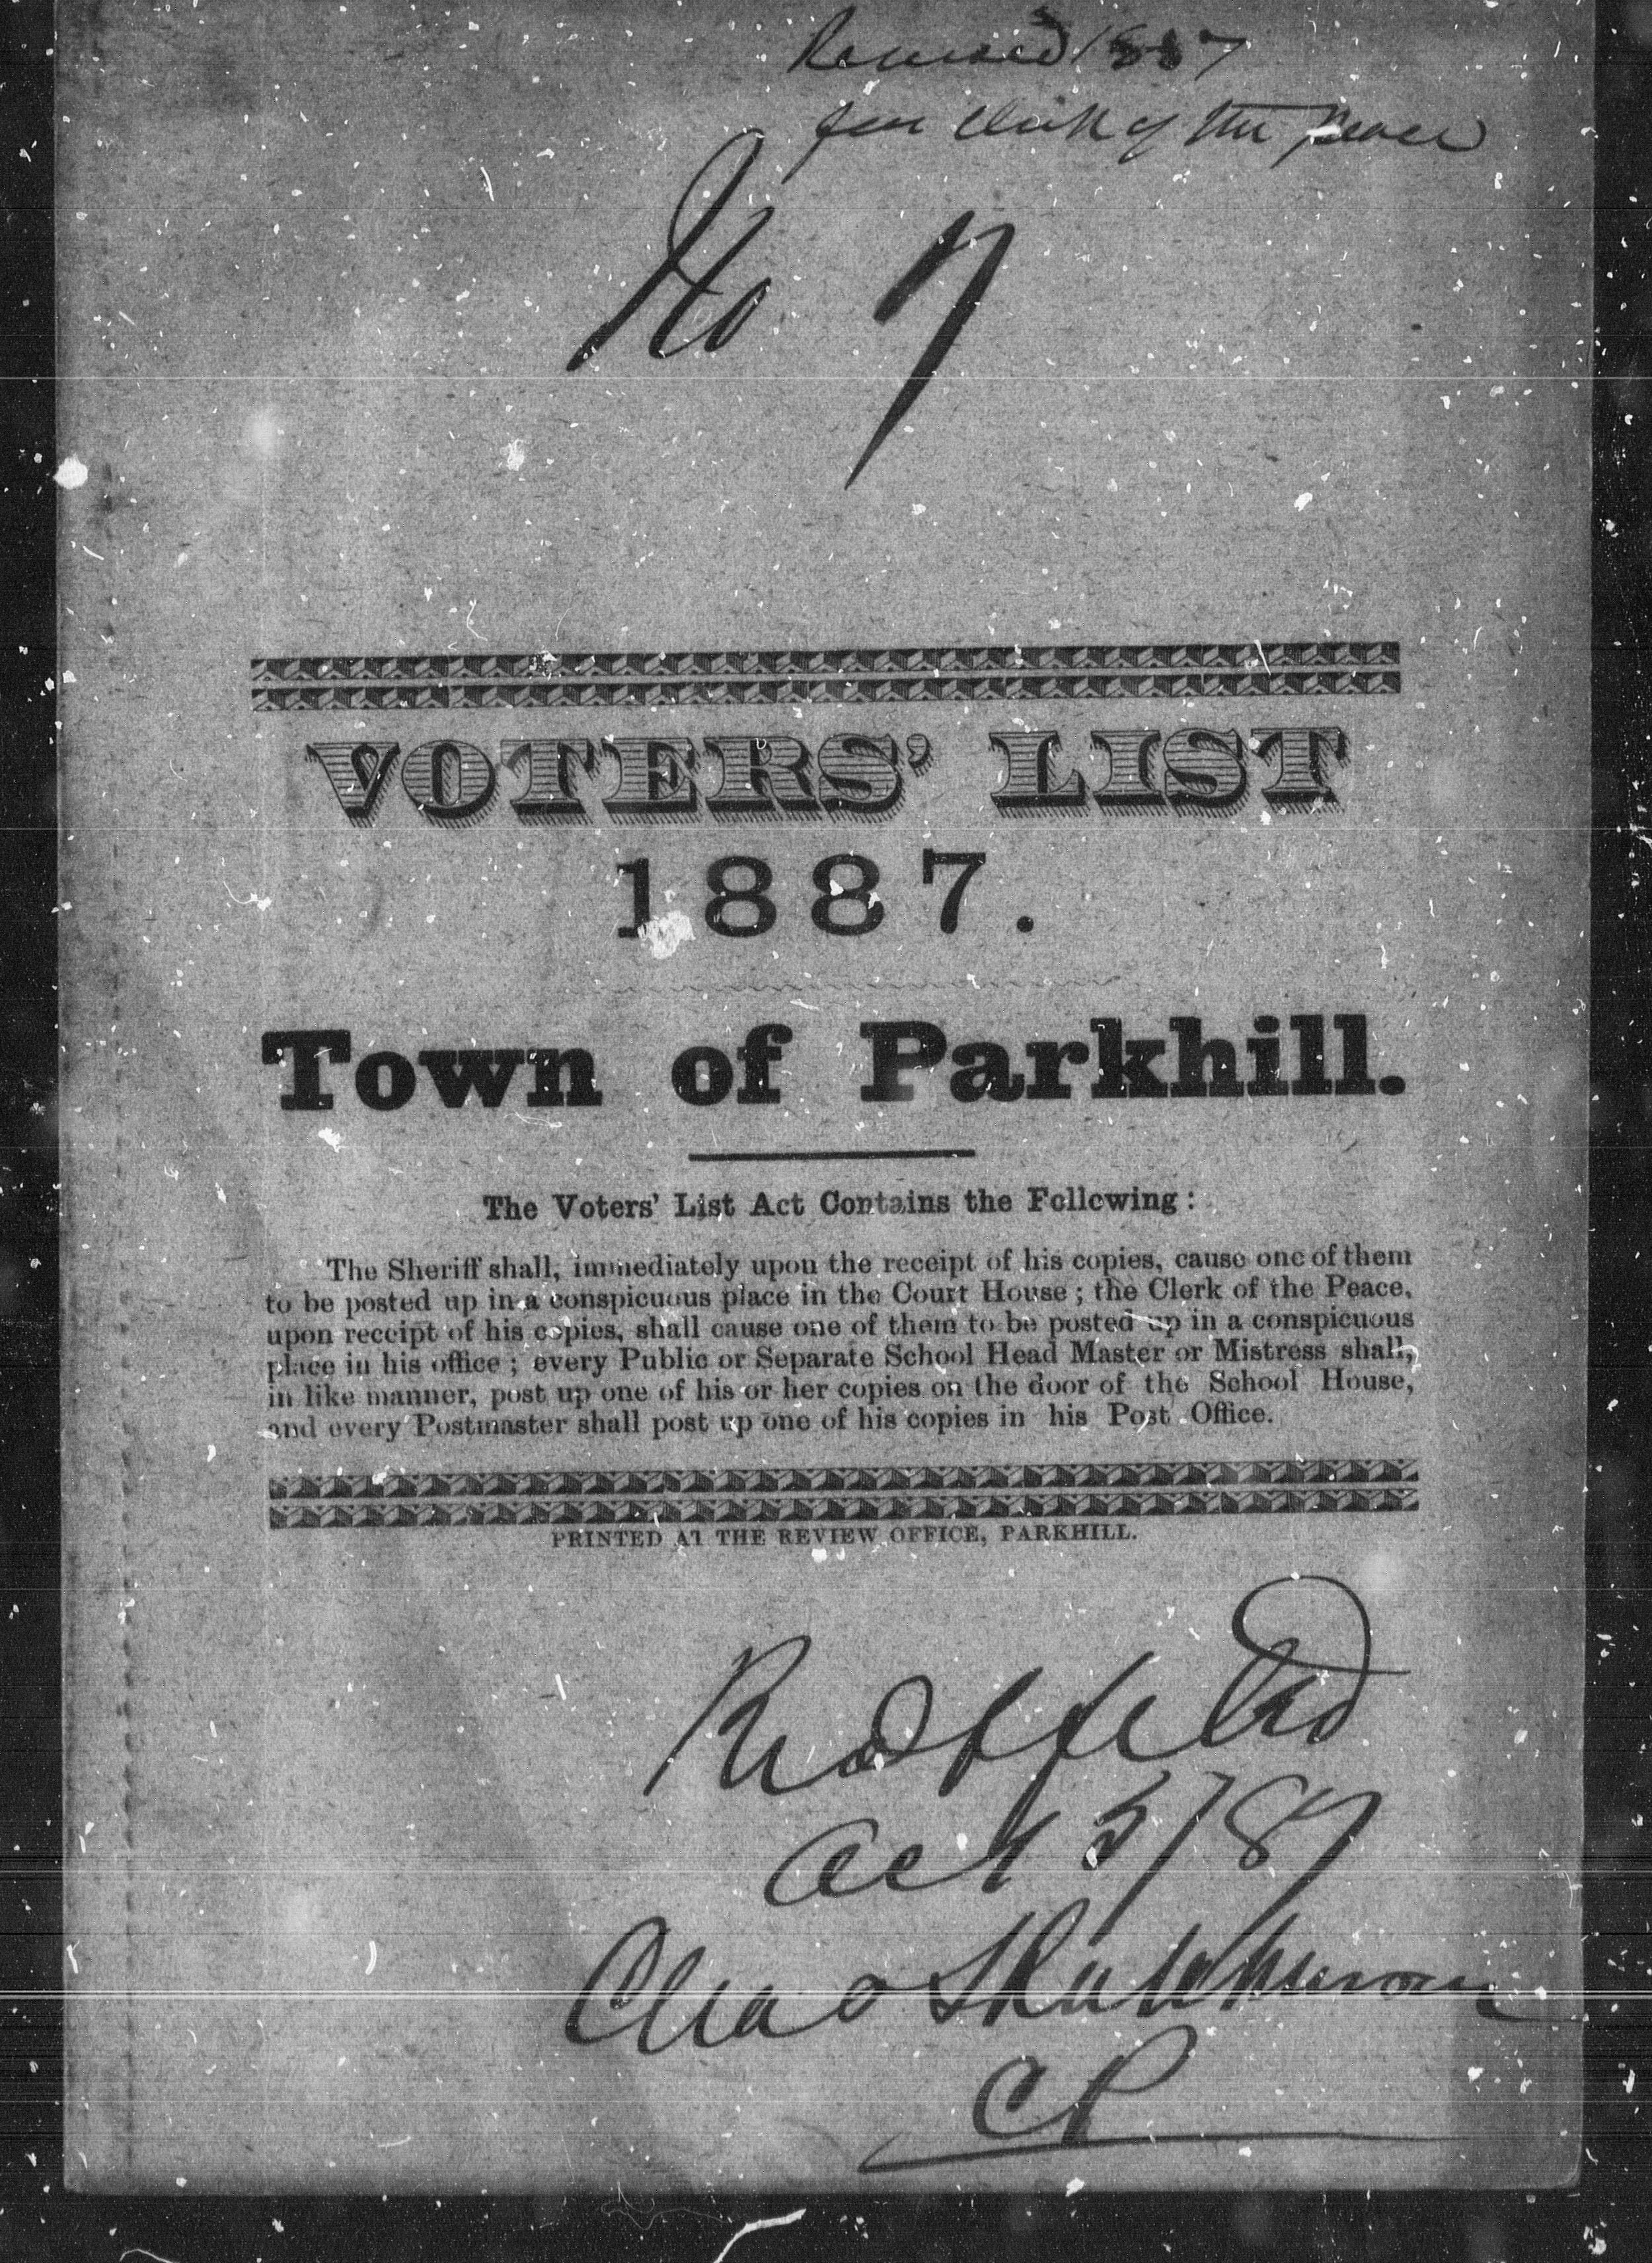 Revised 1887
for Clerk of the Peace
No 7
VOTERS' LIST
1887.
Town of Parkhill.
The Voters' List Act Contains the Following:
The Sheriff shall, immediately upon the receipt of his copies, cause one of them
to be posted up in a conspicuous place in the Court House; the Clerk of the Peace,
upon receipt of his copies, shall cause one of them to be posted up in a conspicuous
place in his office; every Public or Separate School Head Master or Mistress shall,
in like manner, post up one of his or her copies on the door of the School House,
and every Postmaster shall post up one of his copies in his Post Office.
PRINTED AT THE REVIEW OFFICE, PARKHILL.
Oct 5/87
Chas Hutchinson
CP